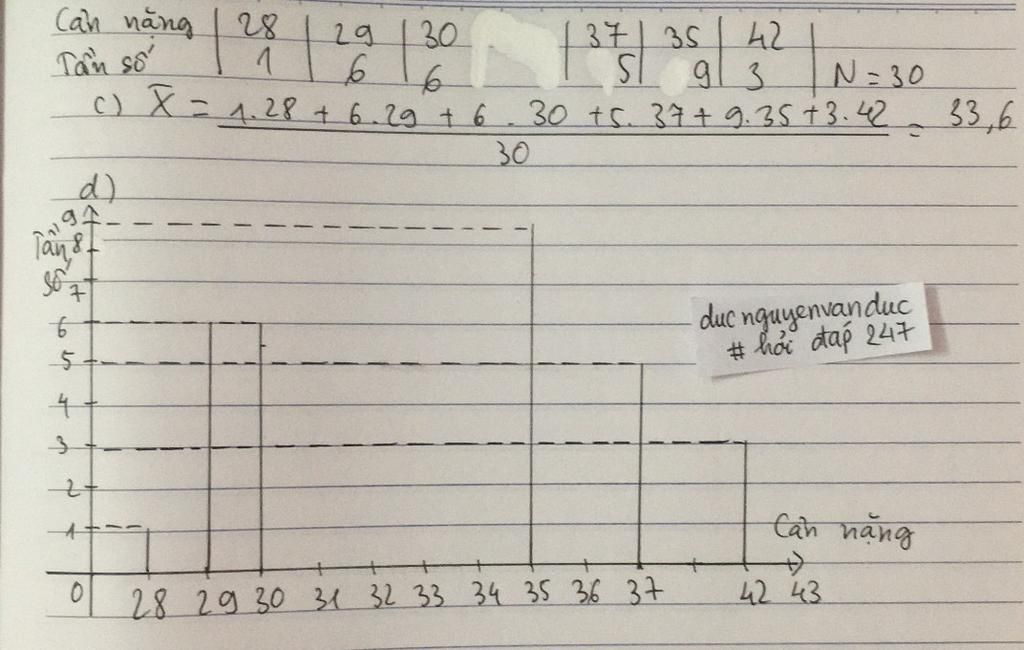 Cân nặng | 28 | 29 | 30 | 37 | 35 | 42 |
Tần số | 1 | 6 | 6 | 5 | 9 | 3 | N = 30
c) X̄ = 1.28 + 6.29 + 6.30 + 5.37 + 9.35 + 3.42 = 33,6
30
d)
9
Tần 8
số 7
6
5
4
3
2
1
duc nguyenvanduc
# hỏi đáp 247
Cân nặng
0 28 29 30 31 32 33 34 35 36 37 42 43